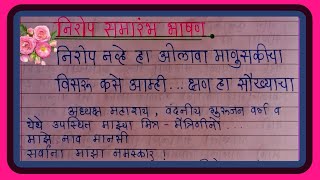 निरोप समारंभ भाषण
निरोप नव्हे हा ओलावा माणुसकीचा
विसरू कसे आम्ही... क्षण हा सौख्याचा
अध्यक्ष महाराज, वंदनीय गुरुजन वर्ग व
येथे उपस्थित माझ्या मित्र-मैत्रिणींनो...
माझे नाव मानसी
सर्वांना माझा नमस्कार!